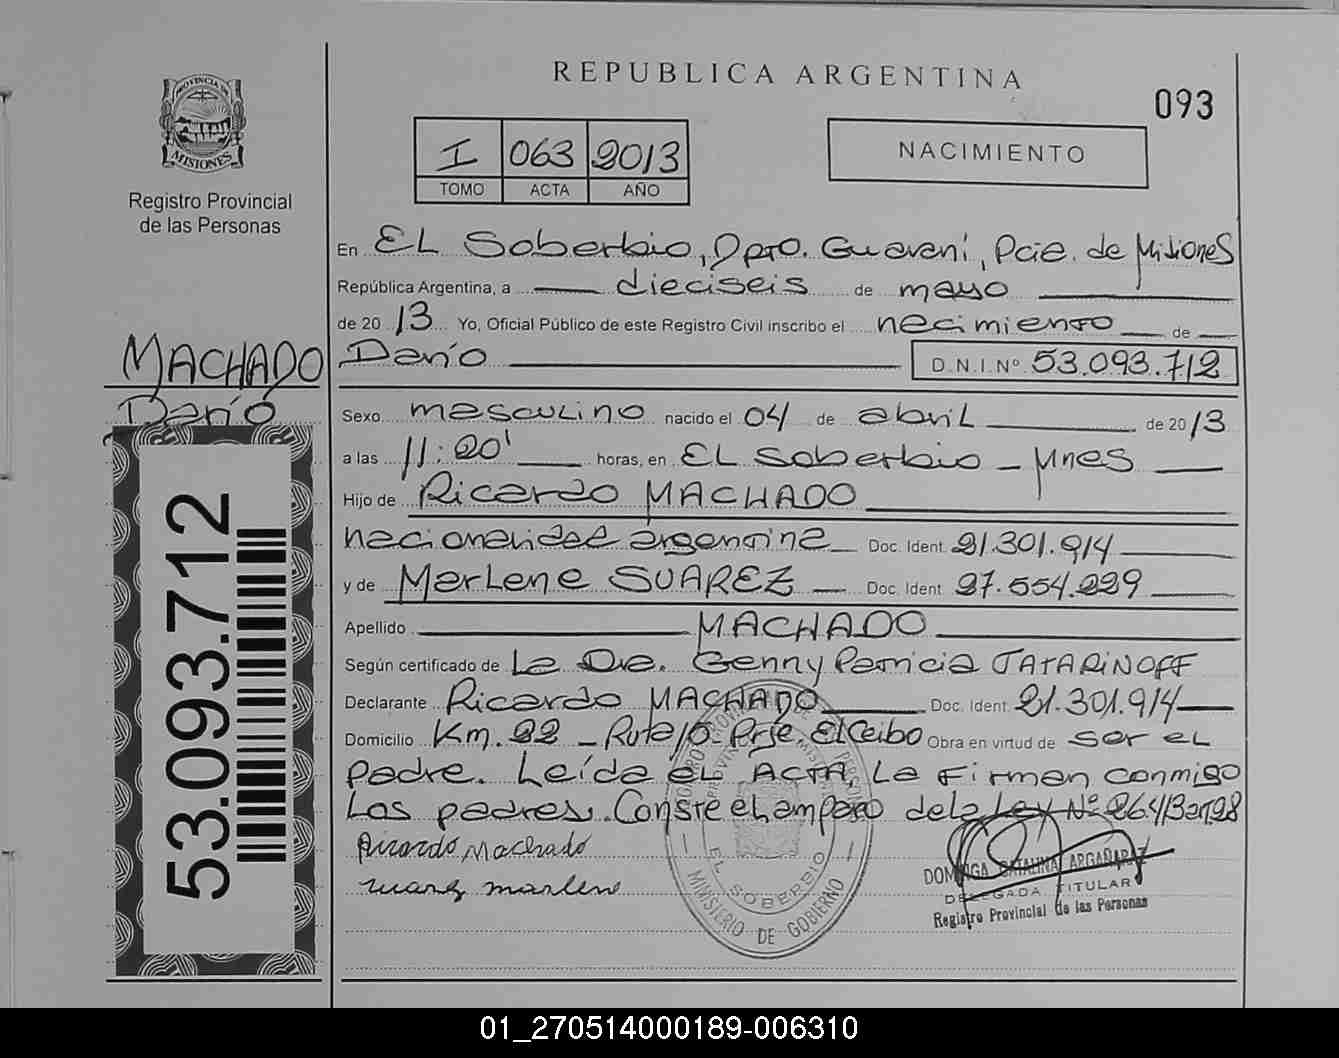 REPUBLICA ARGENTINA
093
PROVINCIA DE
MISIONES
Registro Provincial
de las Personas
I 063 2013
TOMO ACTA AÑO
NACIMIENTO
En EL Soberbio, Dpto. Guaraní, Pcia. de Misiones
República Argentina, a dieciseis de mayo
de 2013 Yo, Oficial Público de este Registro Civil inscribo el nacimiento de
Darío D.N.I. Nº 53.093.712
MACHADO
Darío
53.093.712
Sexo masculino nacido el 04 de abril de 2013
a las 11:20' horas, en EL Soberbio - Mnes
Hijo de Ricardo MACHADO
nacionalidad argentina Doc. Ident. 21.301.914
y de Marlene SUAREZ Doc. Ident 27.554.229
Apellido MACHADO
Según certificado de La Dra. Genny Patricia TATARINOFF
Declarante Ricardo MACHADO Doc. Ident. 21.301.914
Domicilio Km. 22 - Ruta 10- Prje. El Ceibo Obra en virtud de ser el
padre. Leída el ACTA, La Firman conmigo
Los padres. Conste el amparo de la Ley Nº 864/
Ricardo Machado
suarez marlene
EL SOBERBIO
MINISTERIO DE GOBIERNO
DOMINGA CATALINA ARGAÑARAZ
DELEGADA TITULAR
Registro Provincial de las Personas
01_270514000189-006310